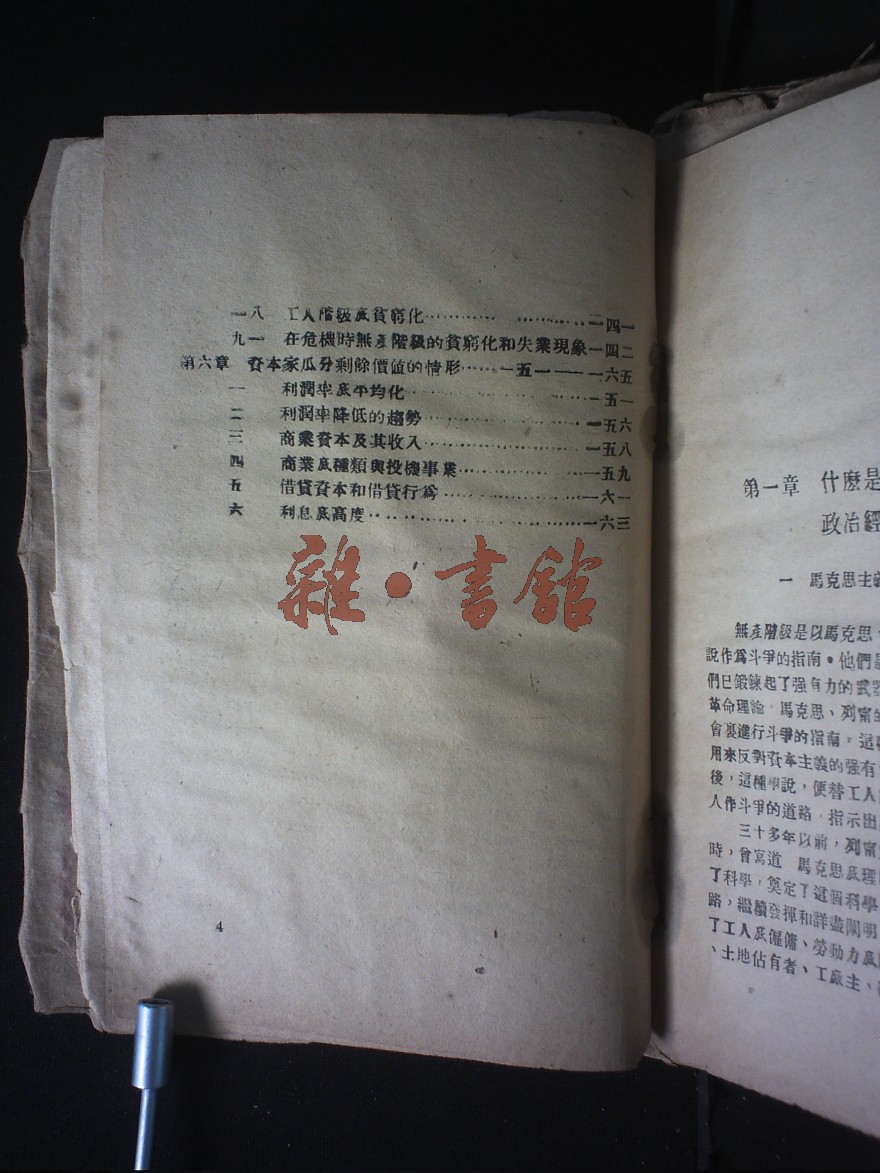 一八 工人階級底貧窮化……一四一
九一 在危機時無產階級的貧窮化和失業現象一四二
第六章 資本家瓜分剩餘價值的情形……一五一——一六五
一 利潤率底平均化……一五一
二 利潤率降低的趨勢……一五六
三 商業資本及其收入……一五八
四 商業底種類與投機事業……一五九
五 借貸資本和借貸行為……一六一
六 利息底高度……一六三
雜·書館
4
第一章 什麼是
政治經
一 馬克思主義
無產階級是以馬克思、
說作為斗爭的指南。他們
們已鍛鍊起了强有力的武器
革命理論。馬克思、列甯的
會裏進行斗爭的指南。這
用來反對資本主義的强有
後，這種學說，便替工人
人作斗爭的道路，指示出
三十多年以前，列甯
時，曾寫道 馬克思底理
了科學，奠定了這個科學
路，繼續發揮和詳盡闡明
了工人底僱傭、勞動力底
、土地佔有者、工廠主、